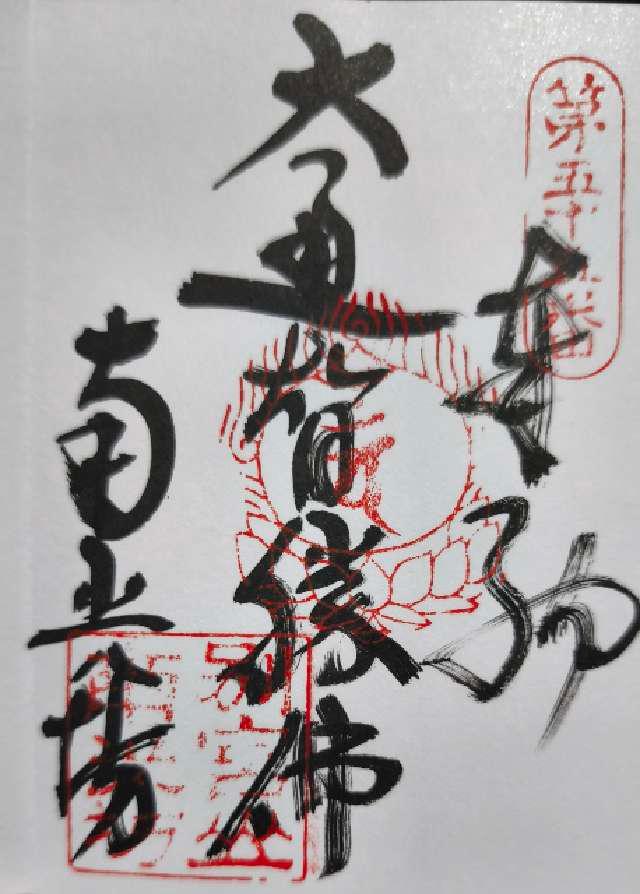 第五十五番
奉納
大通智勝佛
南光坊